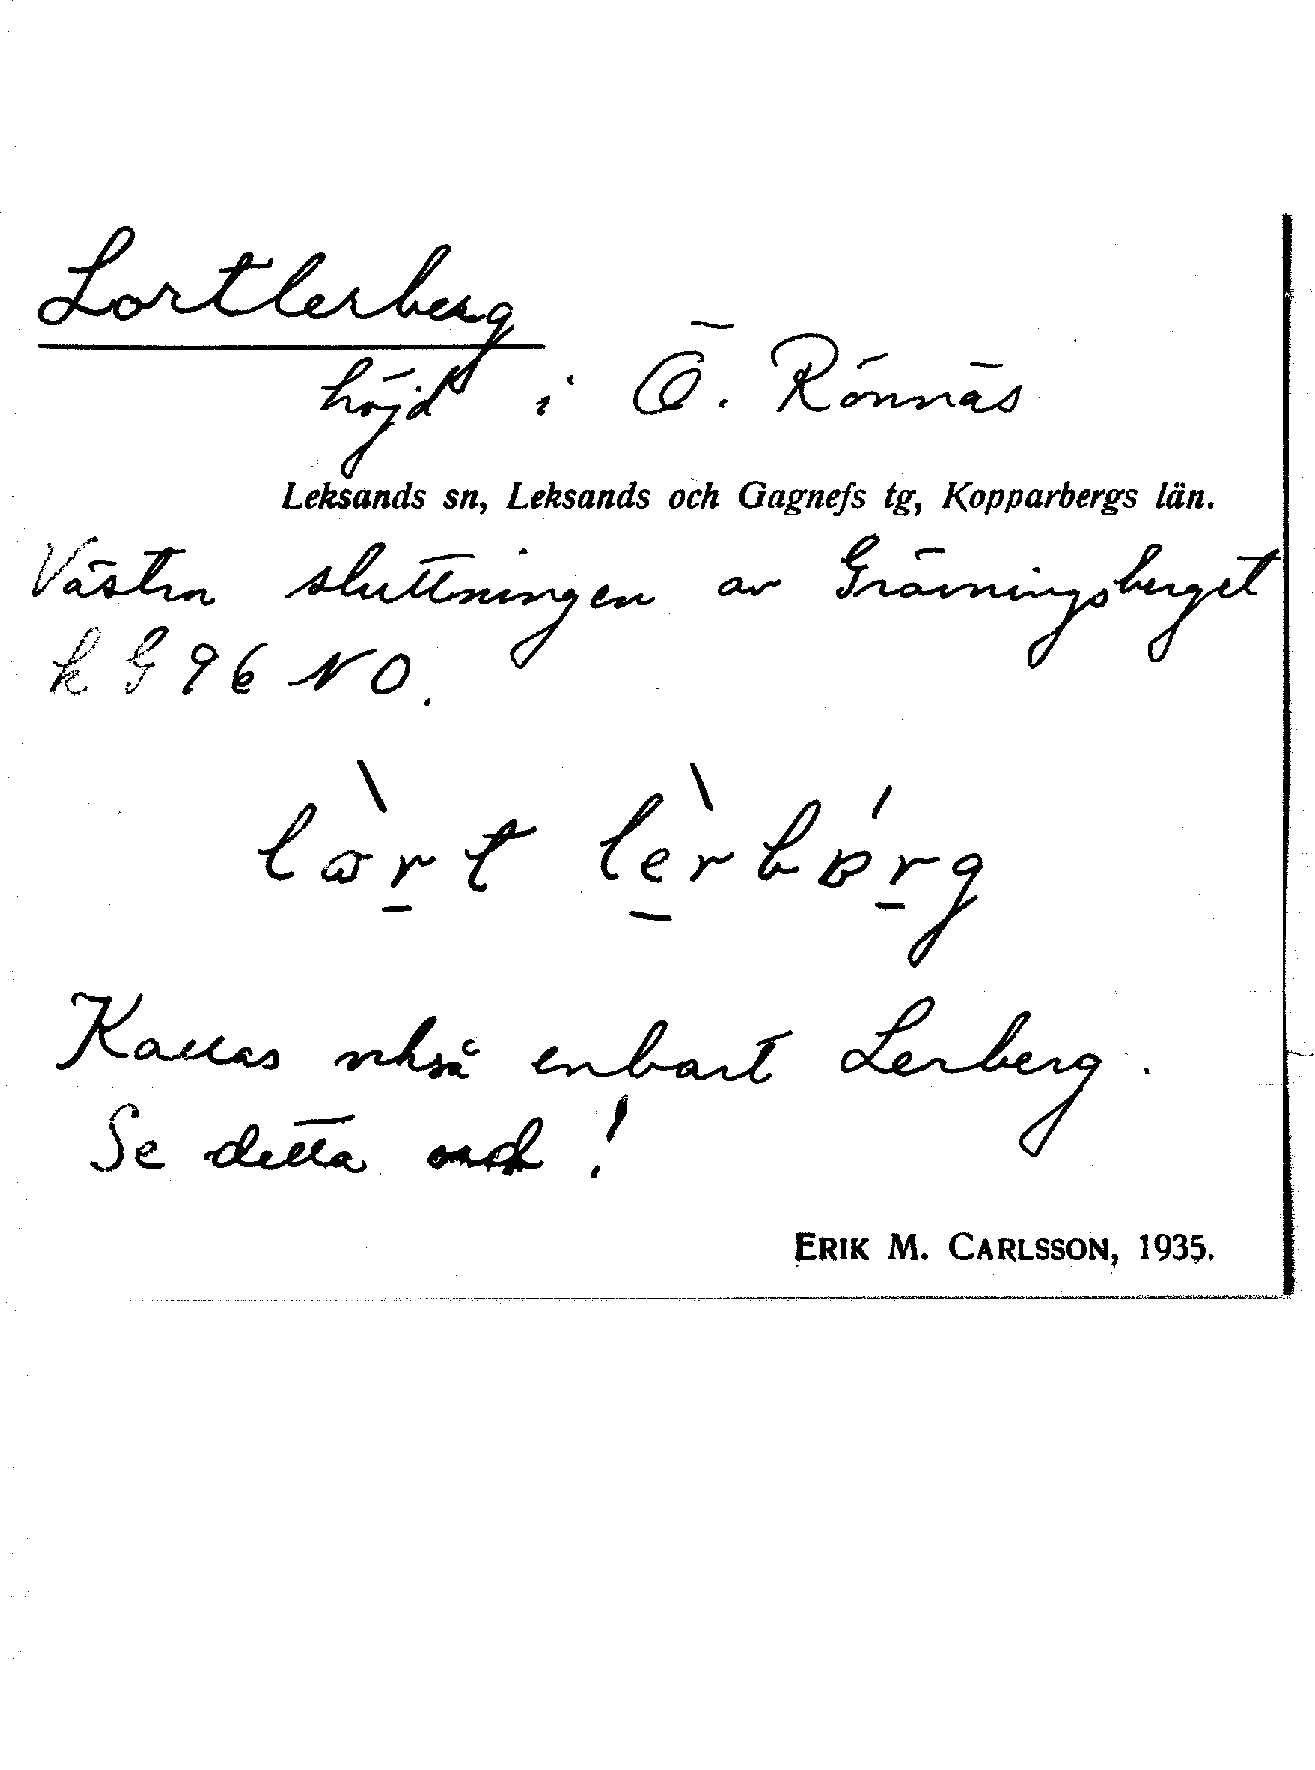 Lortlerberg
höjd i Ö. Rönnäs
Leksands sn, Leksands och Gagnefs tg, Kopparbergs län.
Västra sluttningen av Grävningsberget
k G 96 NO.
Kallas också enbart Lerberg.
Se detta ord!
ERIK M. CARLSSON, 1935.